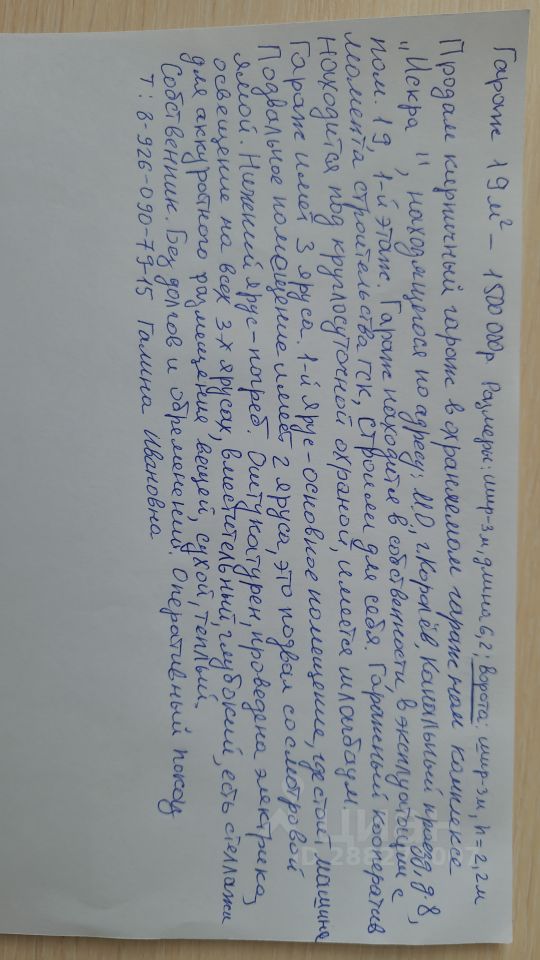 Гараж 19 м² – 1500 000р Размеры: шир-3м, длина 6,2; Ворота: шир-3м, h = 2,2м
Продам кирпичный гараж в охраняемом гаражном комплексе
"Искра", находящегося по адресу: М.О, г. Королёв, Канальный проезд, д. 8,
пом. 19, 1-й этаж. Гараж находится в собственности, в эксплуатации с
момента строительства ГСК, строили для себя. Гаражный кооператив
находится под круглосуточной охраной, имеется шлагбаум.
Гараж имеет 3 яруса. 1-й ярус - основное помещение, где стоит машина
Подвальное помещение имеет 2 яруса, это подвал со смотровой
ямой. Нижний ярус - погреб. Оштукатурен, проведена электрика,
освещение на всех 3-х ярусах, вместительный, глубокий, есть стеллажи
для аккуратного размещения вещей, сухой, теплый.
Собственник. Без долгов и обременений. Оперативный показ
Т: 8-926-090-79-15 Галина Ивановна
ЦИАН